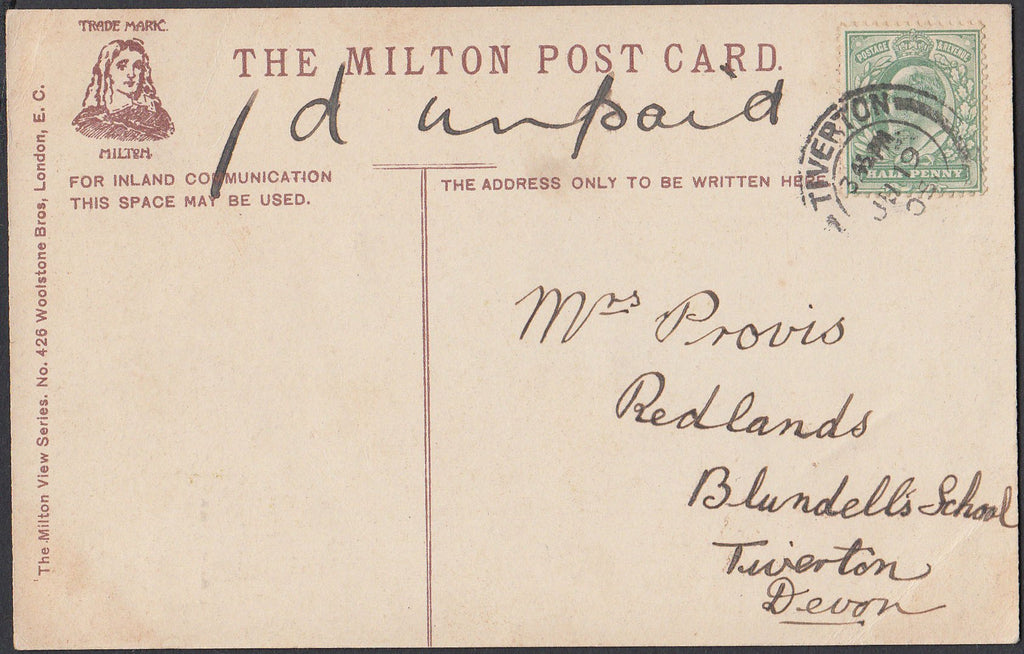 TRADE MARK.
MILTON.
THE MILTON POST CARD.
1d unpaid
POSTAGE & REVENUE
HALF PENNY
TIVERTON
3 45 PM
JU 19
05
FOR INLAND COMMUNICATION
THIS SPACE MAY BE USED.
THE ADDRESS ONLY TO BE WRITTEN HERE
The Milton View Series. No. 426 Woolstone Bros, London, E. C.
Mrs Provis
Redlands
Blundell's School
Tiverton
Devon